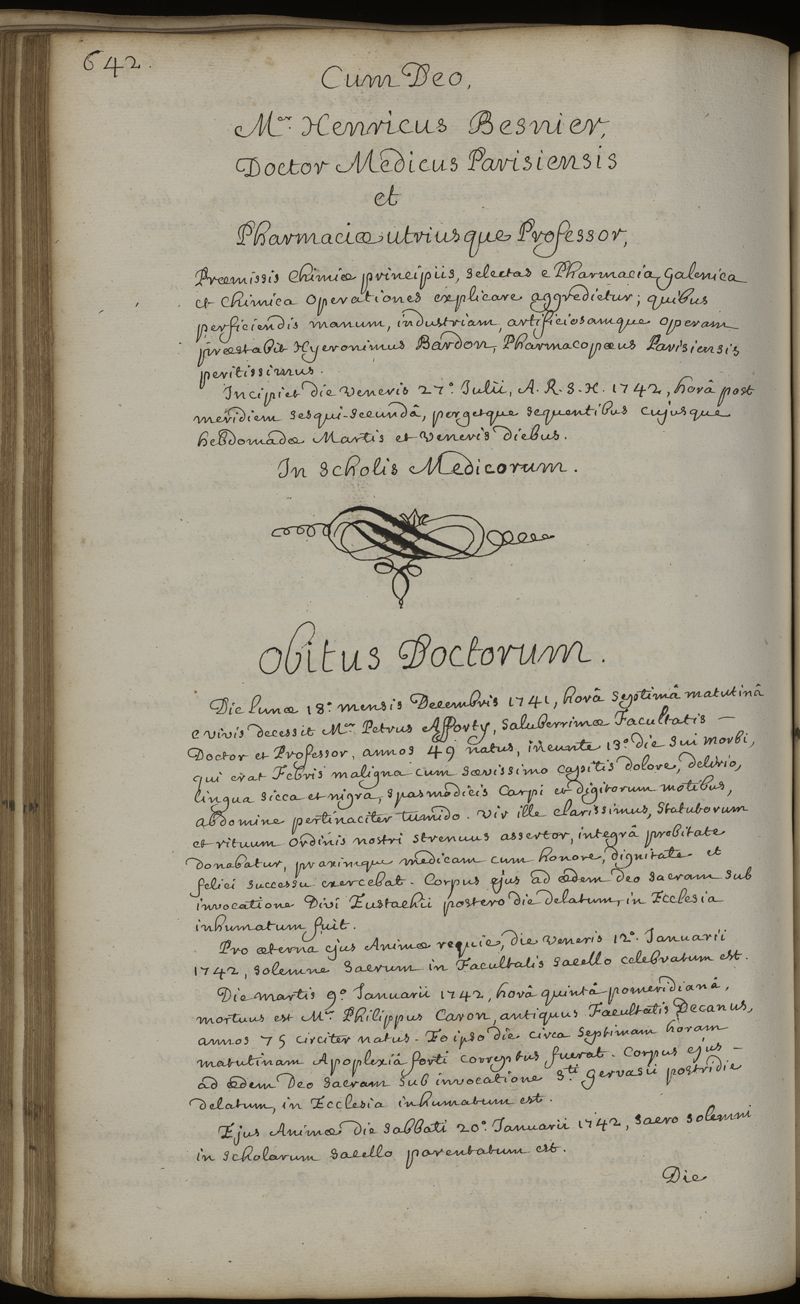 642.
Cum Deo,
Mer. Henricus Besnier,
Doctor Medicus Parisiensis
et
Pharmaciæ utriusque Professor,
Præmissis Chimiæ principiis, selectas e Pharmacia Galenica
et Chimica operationes explicare aggredietur; quibus
perficiendis manum, industriam, artificiosamque operam
præstabit Hyeronimus Bardon, Pharmacopæus Parisiensis
peritissimus.
Incipiet die Veneris 27a. Julii, A. R. S. H. 1742, horâ post
meridiem sesqui-secundâ, pergetque sequentibus cujusque
hebdomadæ Martis et Veneris diebus.
In Scholis Medicorum.
Obitus Doctorum.
Die Lunæ 18a. mensis Decembris 1741, horâ septimâ matutinâ
e vivis decessit Mer. Petrus Afforty, saluberrimæ Facultatis —
Doctor et Professor, annos 49 natus, ineunte 13o. die sui morbi,
qui erat Febris maligna cum sævissimo capitis dolore, delirio,
lingua sicca et nigra, spasmodicis Carpi et digitorum motibus,
abdomine pertinaciter tumido. Vir ille clarissimus, Statutorum
et rituum ordinis nostri strenuus assertor, integrâ probitate
donabatur, praximque medicam cum honore, dignitate et
felici successu exercebat. Corpus ejus ad ædem Deo sacram sub
invocatione Divi Eustachii postero die delatum, in Ecclesia
inhumatum fuit.
Pro æterna ejus Animæ requie, die Veneris 12a. Januarii
1742, solemne sacrum in Facultatis sacello celebratum est.
Die martis 9a Januarii 1742, horâ quintâ pomeridianâ,
mortuus est Mer. Philippus Caron, antiquus Facultatis Decanus,
annos 75 circiter natus. Eo ipso die circa septimam horam
matutinam Apoplexiâ forti correptus fuerat. Corpus ejus —
ad ædem Deo sacram sub invocatione Sti Gervasii postridie
delatum, in Ecclesia inhumatum est.
Ejus Animæ die sabbati 20a. Januarii 1742, sacro solemni
in scholarum sacello parentatum est.
Die